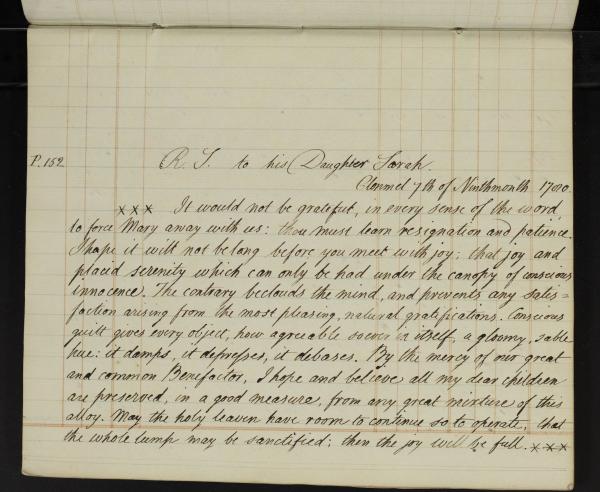 P. 152. R. S. to his Daughter Sarah.
Clonmel 7th of Ninthmonth 1790.
× × × It would not be grateful, in every sense of the word,
to force Mary away with us: thou must learn resignation and patience.
I hope it will not be long before you meet with joy; that joy and
placid serenity which can only be had under the canopy of conscious
innocence. The contrary beclouds the mind, and prevents any satis=
faction arising from the most pleasing, natural gratifications. Conscious
guilt gives every object, how agreeable soever in itself, a gloomy, sable
hue: it damps, it depresses, it debases. By the mercy of our great
and common Benefactor, I hope and believe all my dear children
are preserved, in a good measure, from any great mixture of this
alloy. May the holy leaven have room to continue so to operate, that
the whole lump may be sanctified; then the joy will be full. × × ×